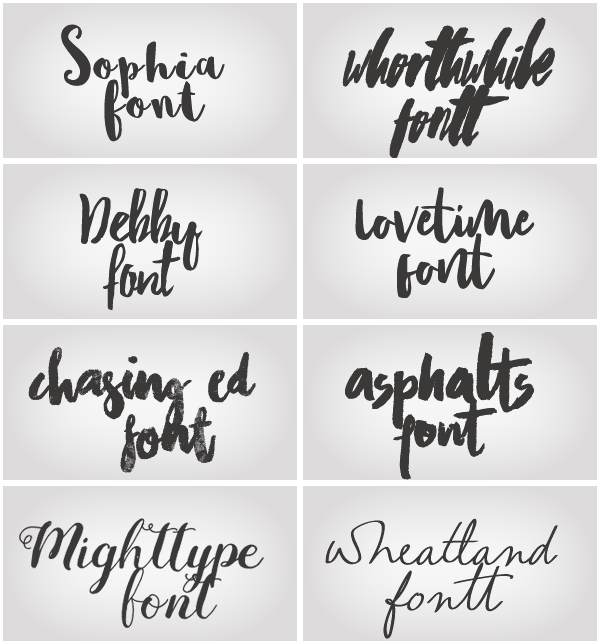 Sophia
font
whorthwhile
fontt
Debby
font
Lovetime
font
chasing ed
font
asphalts
font
Mighttype
font
wheatland
fontt